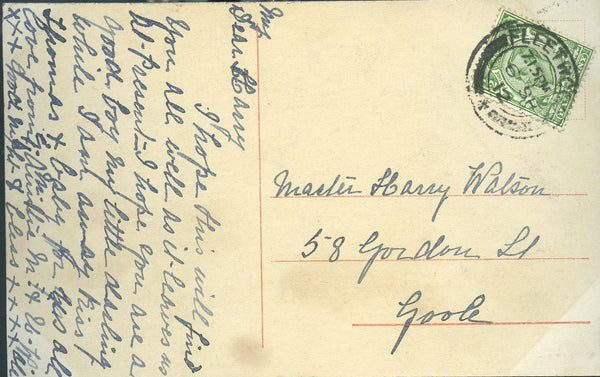 My
Dear Harry
I hope this will find
You all well as it leaves me
At Present I hope you are a
Good boy my little darling
while I am away kiss
Thomas & baby for us all
Love from
x x x Good night & bless x x x x all
FLEETWOOD
7.15 PM
6 SP
Master Harry Watson
58 Gordon St
Goole